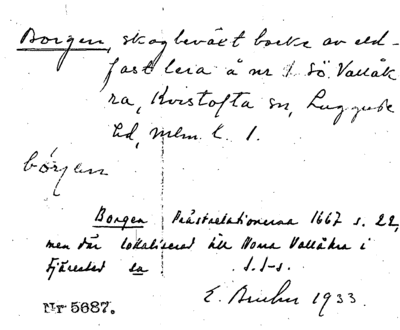 Borgen, skogbeväxt backe av eld-
fast lera å nr 1 Sö. Vallåk
ra, Kvistofta sn, Luggude
hd, mlm l. 1.
börjen
Borgen Prästrelationerna 1667 s. 22,
men där lokaliserad till Norra Vallåkra i
Fjärestad sn
E. 1933.
Nr 5687.